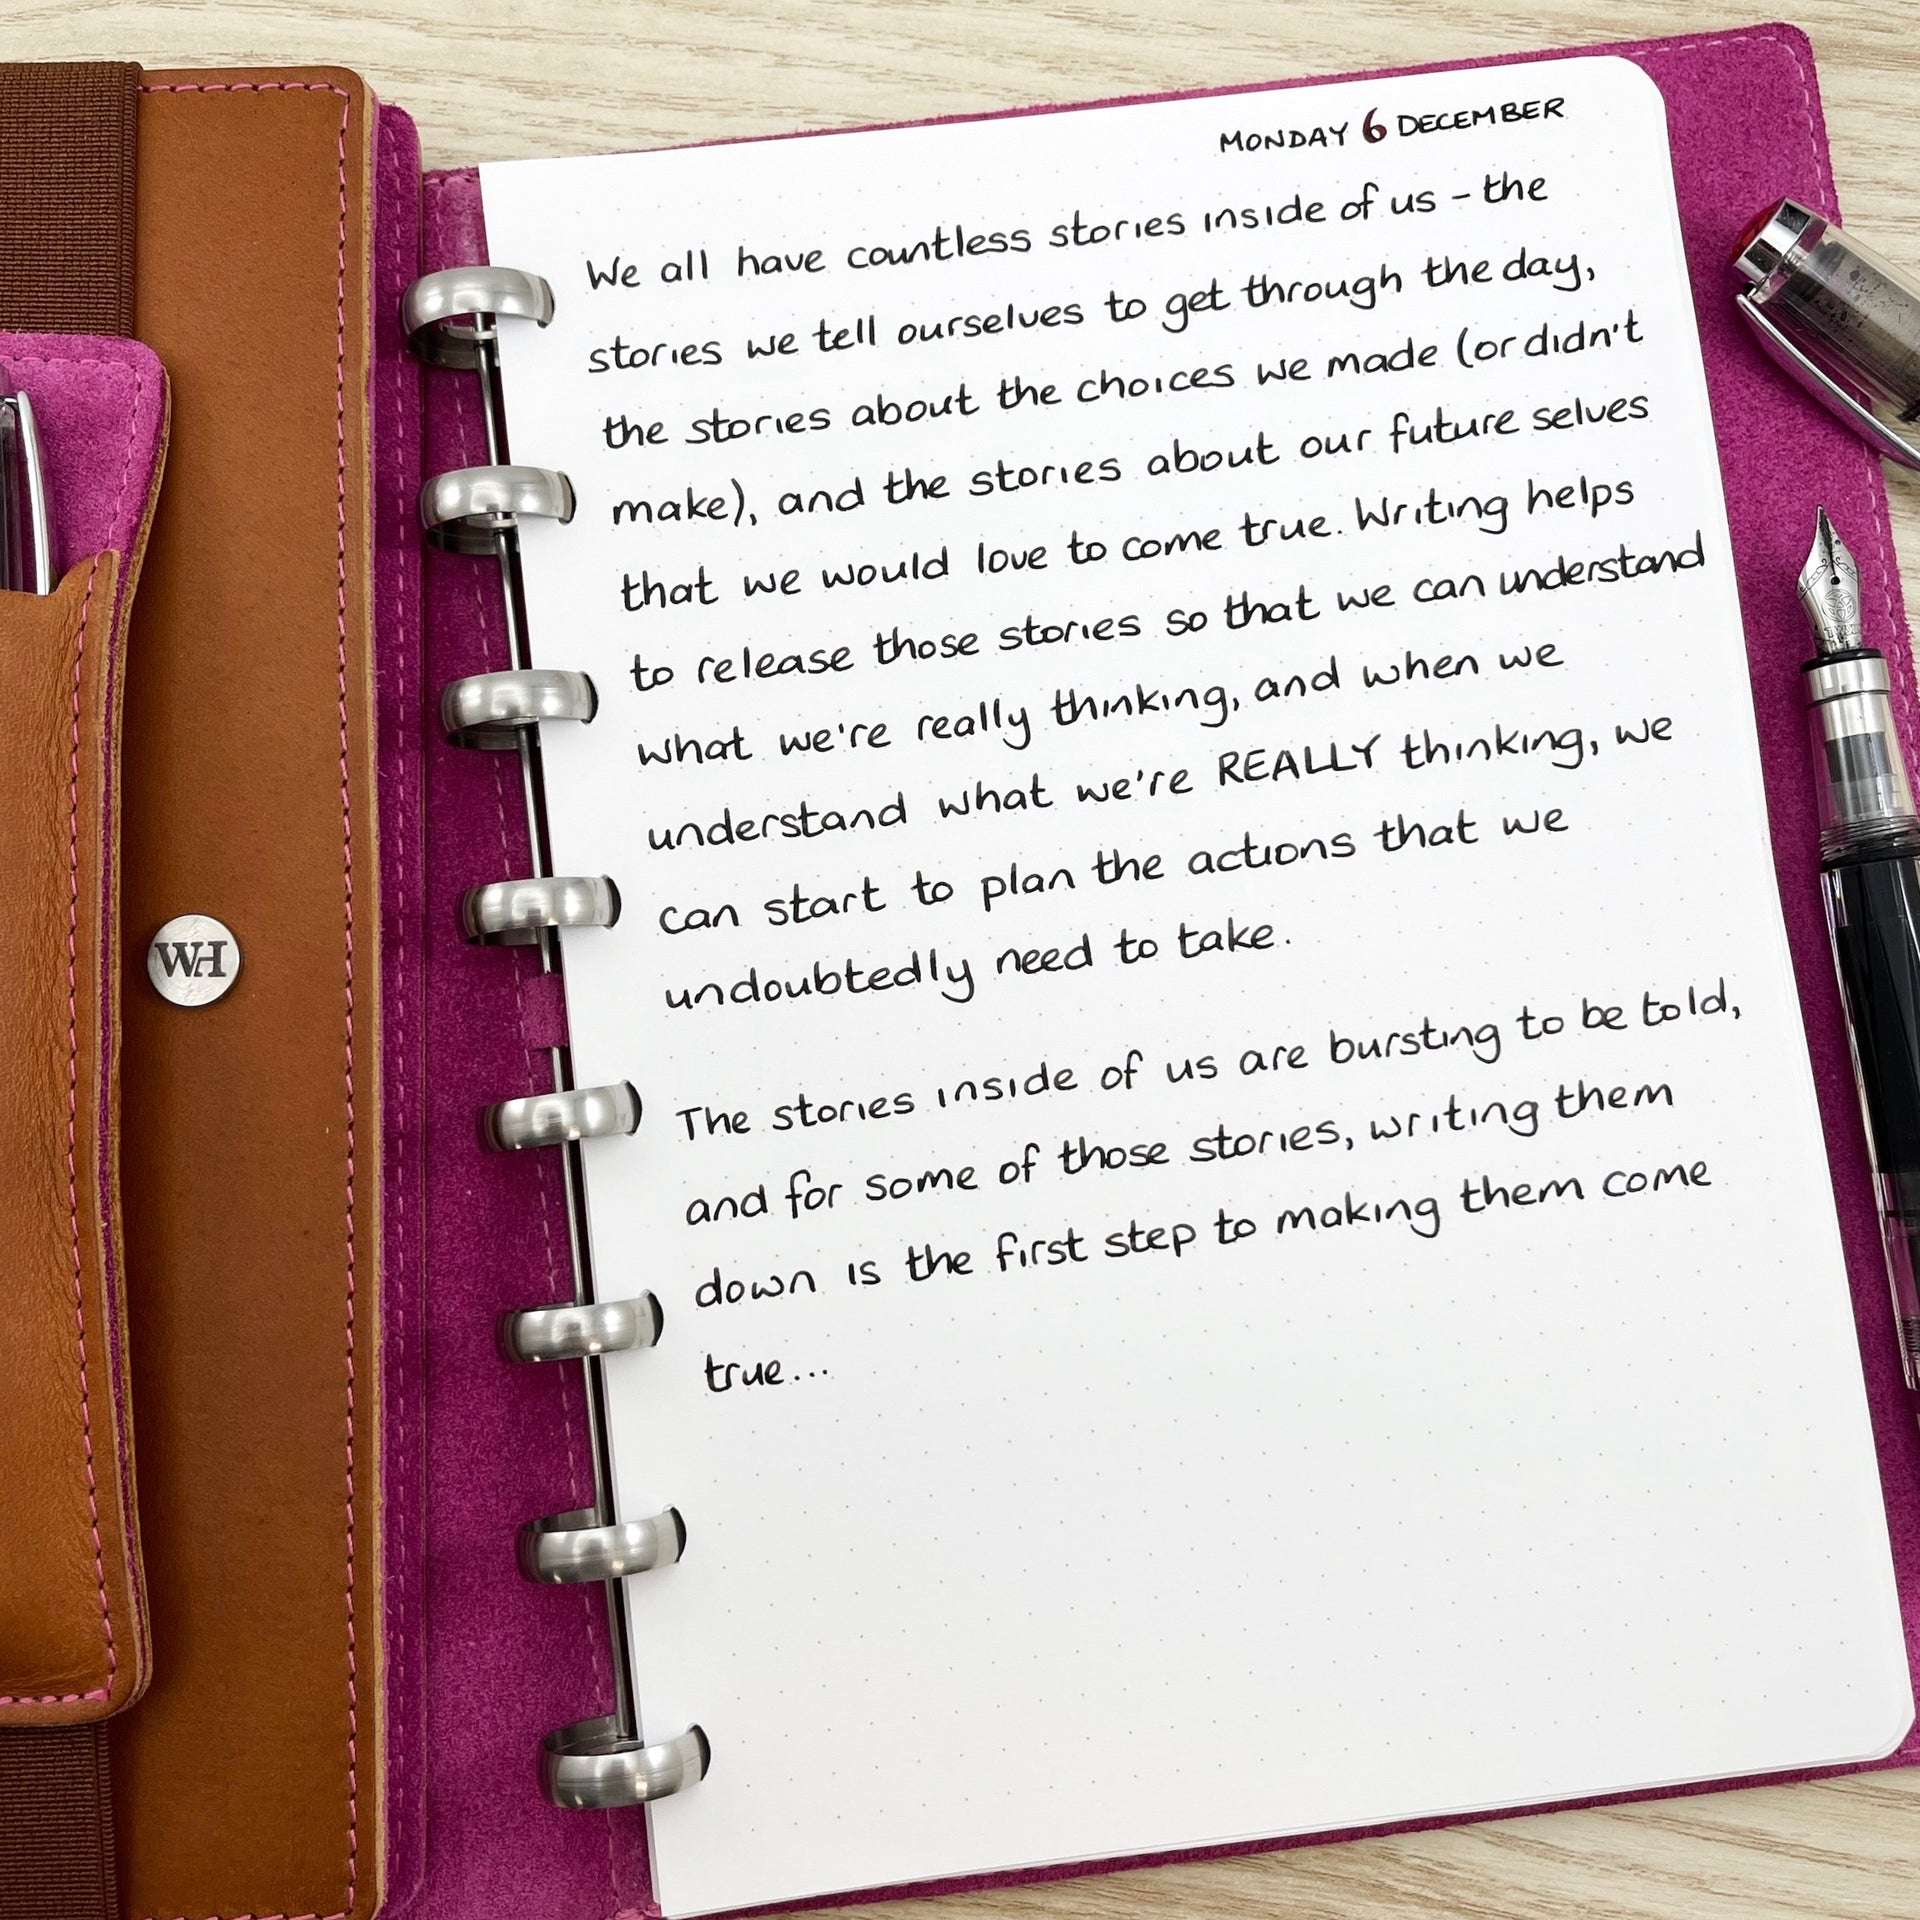 WH
MONDAY 6 DECEMBER
We all have countless stories inside of us - the
stories we tell ourselves to get through the day,
the stories about the choices we made (or didn't
make), and the stories about our future selves
that we would love to come true. Writing helps
to release those stories so that we can understand
what we're really thinking, and when we
understand what we're REALLY thinking, we
can start to plan the actions that we
undoubtedly need to take.
The stories inside of us are bursting to be told,
and for some of those stories, writing them
down is the first step to making them come
true...